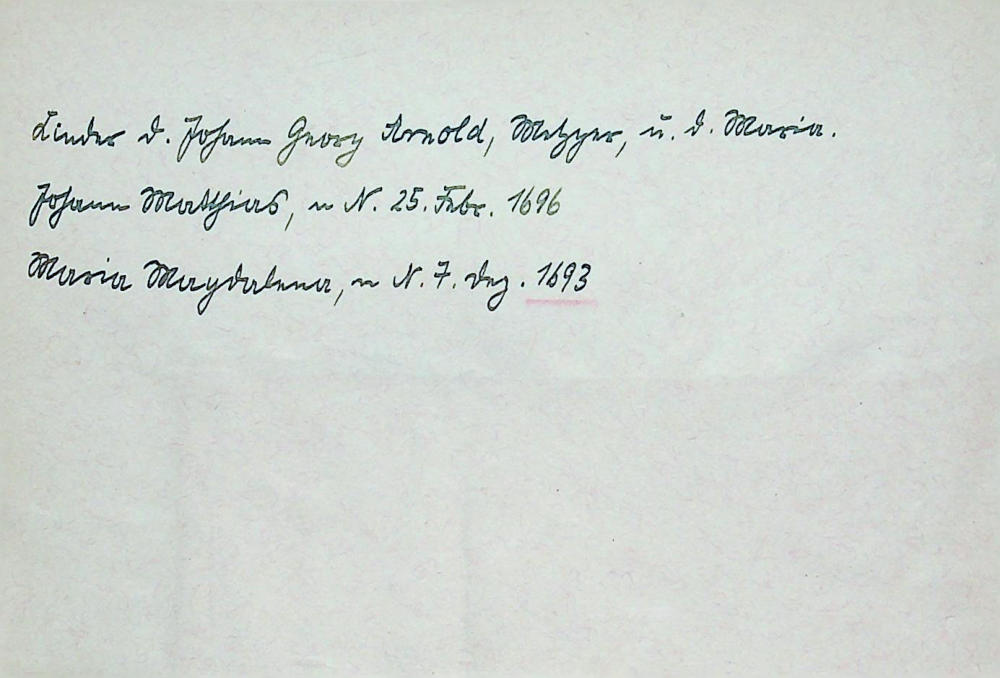 Kinder d. Johann Georg Arnold, Metzger, u. d. Maria.
Johann Matthias, ~ N. 25. Febr. 1696
Maria Magdalena, ~ N. 7. Dez. 1693